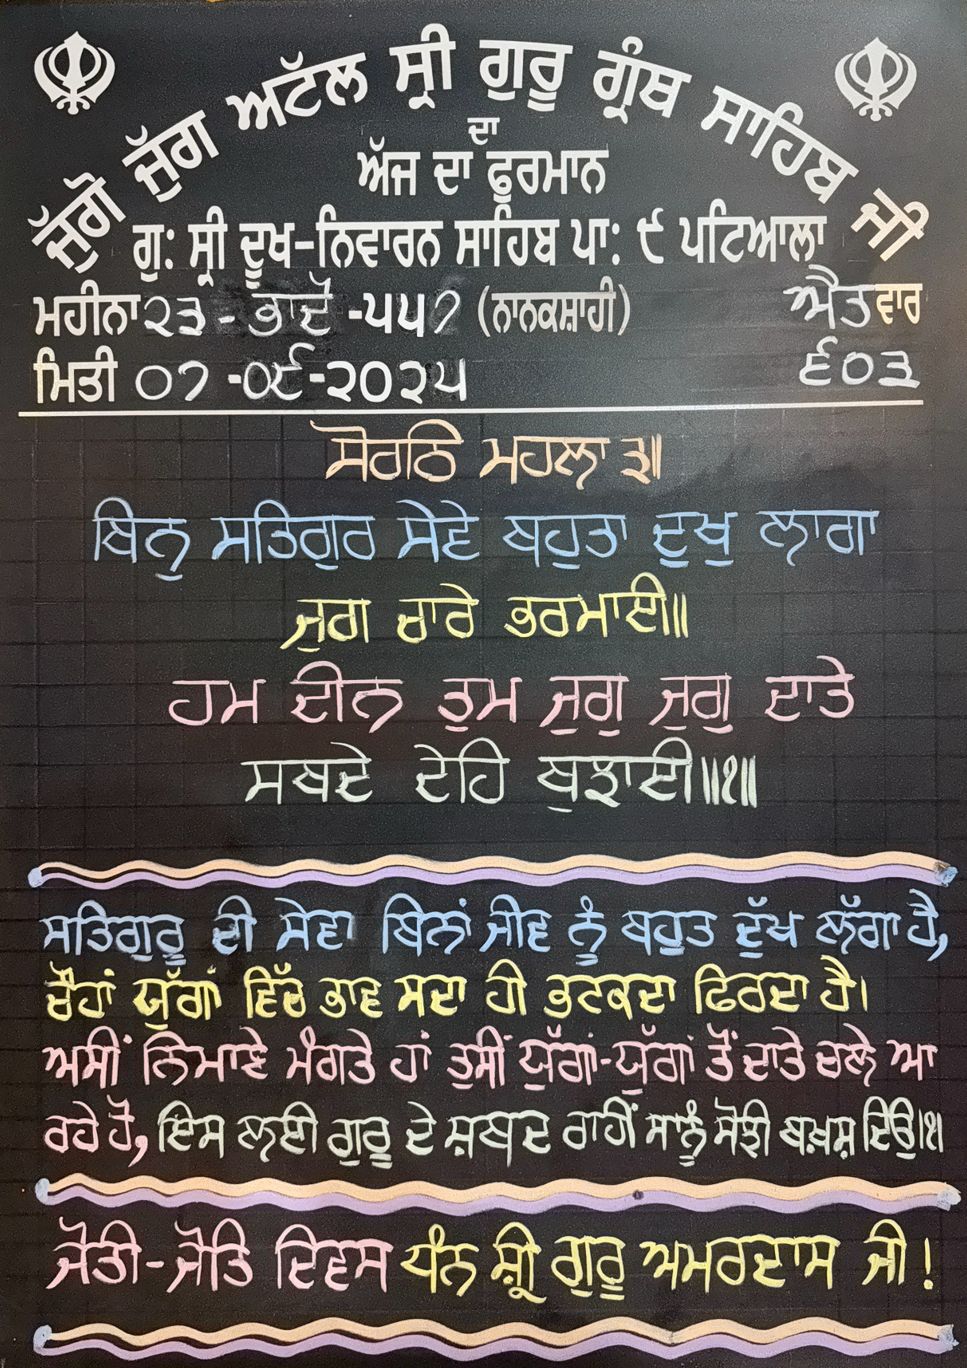 ਜੁੱਗੋ ਜੁੱਗ ਅਟੱਲ ਸ੍ਰੀ ਗੁਰੂ ਗ੍ਰੰਥ ਸਾਹਿਬ ਜੀ
ਦਾ
ਅੱਜ ਦਾ ਫੂਰਮਾਨ
ਗੁ: ਸ੍ਰੀ ਦੂਖ-ਨਿਵਾਰਨ ਸਾਹਿਬ ਪਾ: ੯ ਪਟਿਆਲਾ
ਮਹੀਨਾ ੨੩ - ਭਾਦੋਂ -੫੫੭ (ਨਾਨਕਸ਼ਾਹੀ) ਐਤਵਾਰ
ਮਿਤੀ ੦੭ -੦੯-੨੦੨੫ ੬੦੩
ਸੋਰਠਿ ਮਹਲਾ ੩॥
ਬਿਨੁ ਸਤਿਗੁਰ ਸੇਵੇ ਬਹੁਤਾ ਦੁਖੁ ਲਾਗਾ
ਜੁਗ ਚਾਰੇ ਭਰਮਾਈ॥
ਹਮ ਦੀਨ ਤੁਮ ਜੁਗੁ ਜੁਗੁ ਦਾਤੇ
ਸਬਦੇ ਦੇਹਿ ਬੁਝਾਈ॥੧॥
ਸਤਿਗੁਰੂ ਦੀ ਸੇਵਾ ਬਿਨਾਂ ਜੀਵ ਨੂੰ ਬਹੁਤ ਦੁੱਖ ਲੱਗਾ ਹੈ,
ਚੌਹਾਂ ਯੁੱਗਾਂ ਵਿੱਚ ਭਾਵ ਸਦਾ ਹੀ ਭਟਕਦਾ ਫਿਰਦਾ ਹੈ।
ਅਸੀਂ ਨਿਮਾਣੇ ਮੰਗਤੇ ਹਾਂ ਤੁਸੀਂ ਯੁੱਗਾਂ-ਯੁੱਗਾਂ ਤੋਂ ਦਾਤੇ ਚਲੇ ਆ
ਰਹੇ ਹੋ, ਇਸ ਲਈ ਗੁਰੂ ਦੇ ਸ਼ਬਦ ਰਾਹੀਂ ਸਾਨੂੰ ਸੋਝੀ ਬਖ਼ਸ਼ ਦਿਉ।੧।
ਜੋਤੀ-ਜੋਤਿ ਦਿਵਸ ਧੰਨ ਸ਼੍ਰੀ ਗੁਰੂ ਅਮਰਦਾਸ ਜੀ !